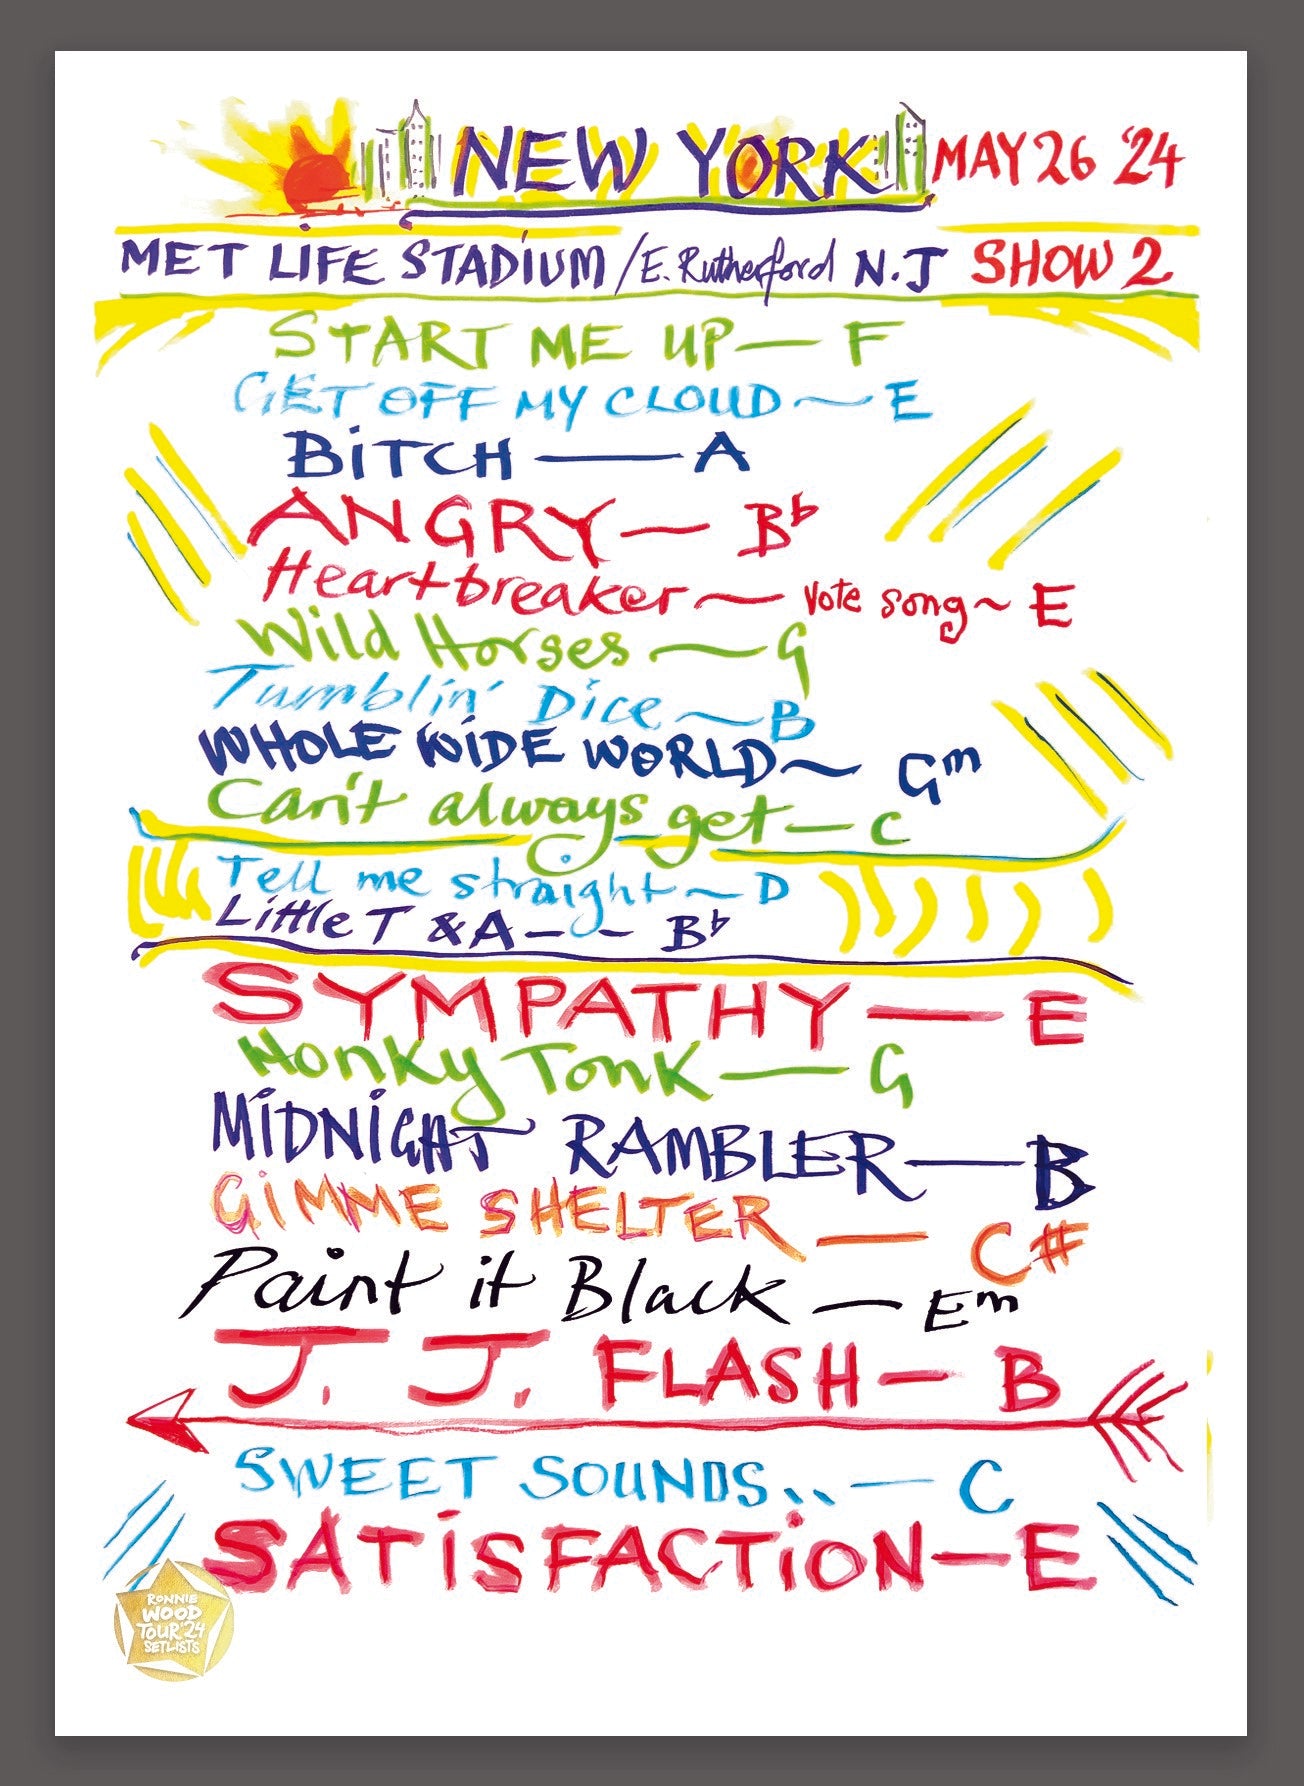 NEW YORK MAY 26 '24
MET LIFE STADIUM / E. Rutherford N.J SHOW 2
START ME UP — F
GET OFF MY CLOUD ~ E
BITCH — A
ANGRY — B♭
Heartbreaker ~ Vote song ~ E
Wild Horses ~ G
Tumblin' Dice ~ B
WHOLE WIDE WORLD ~ Gm
Can't always get — C
Tell me straight ~ D
Little T & A - - - B♭
SYMPATHY — E
Honky Tonk — G
MIDNIGHT RAMBLER — B
GIMME SHELTER — C#
Paint it Black — Em
J. J. FLASH — B
SWEET SOUNDS.. — C
SATISFACTION — E
RONNIE
WOOD
TOUR '24
SETLISTS